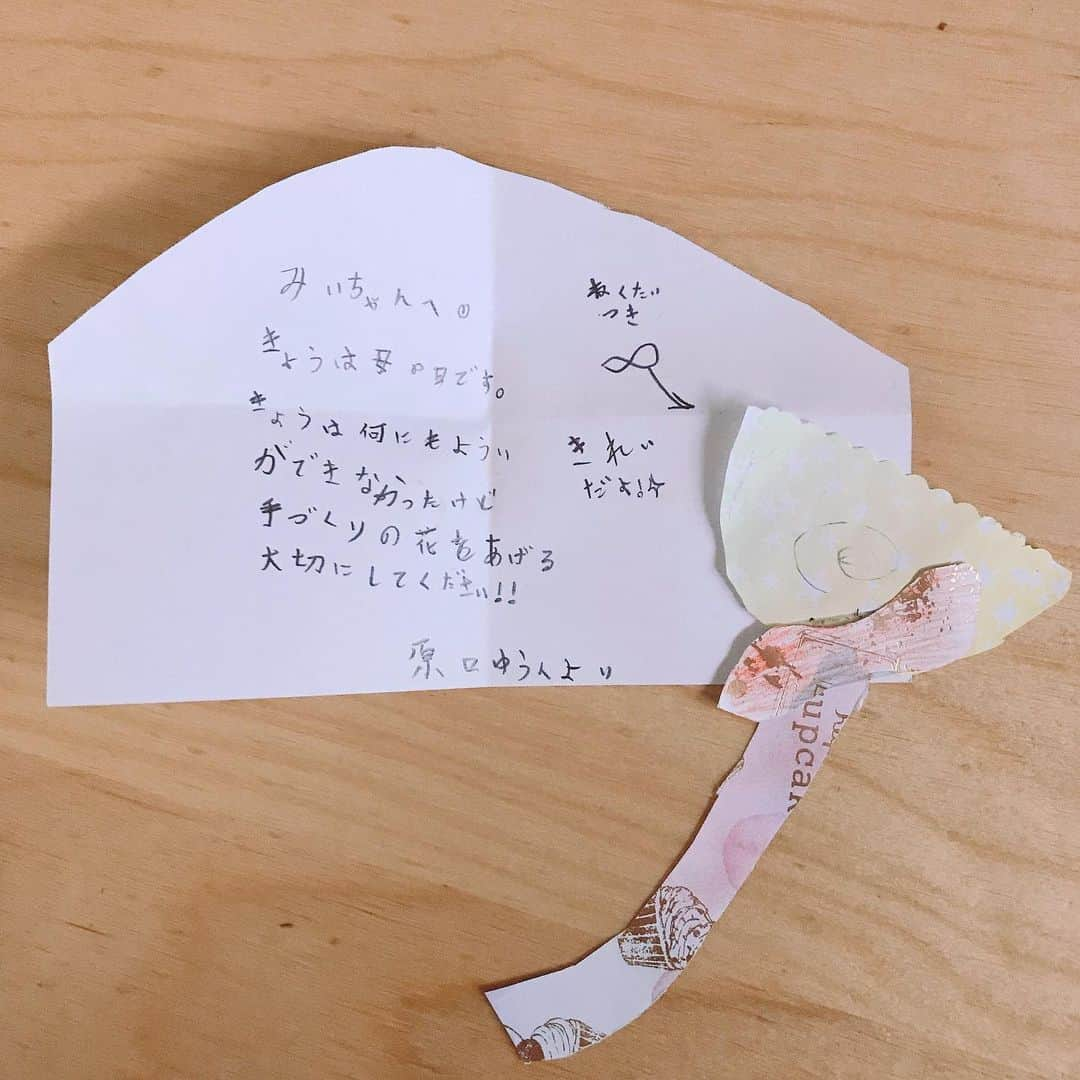 みぃちゃんへ。
きょうは母の日です。
きょうは何にもようい
ができなかったけど
手づくりの花をあげる
大切にしてください!!
原口ゆうんより
ねくたい
つき
きれい
だよ!
cupcak